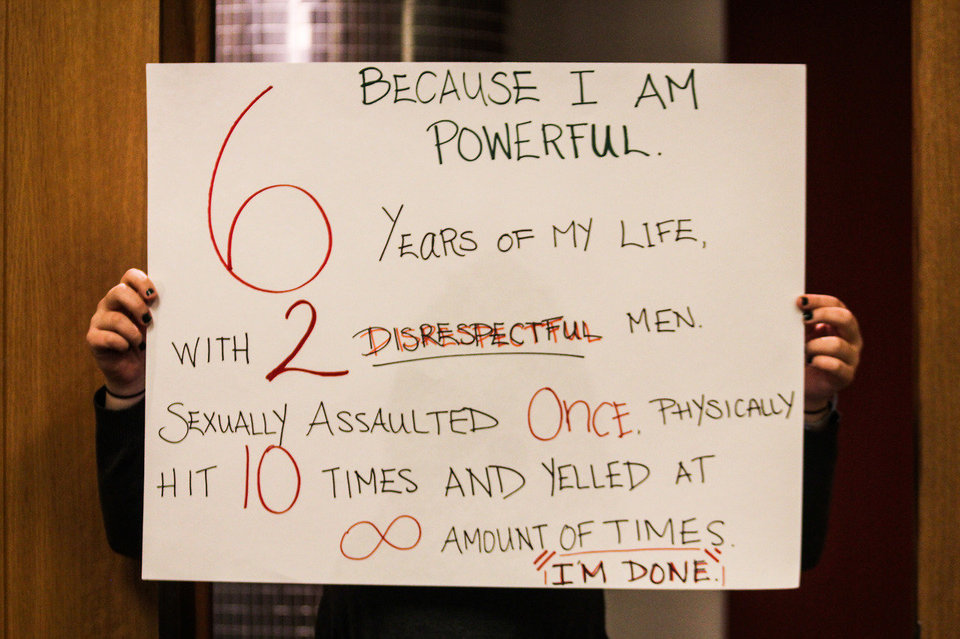 BECAUSE I AM
POWERFUL.
6 YEARS OF MY LIFE,
WITH 2 DISRESPECTFUL MEN.
SEXUALLY ASSAULTED ONCE. PHYSICALLY
HIT 10 TIMES AND YELLED AT
∞ AMOUNT OF TIMES.
"I'M DONE."